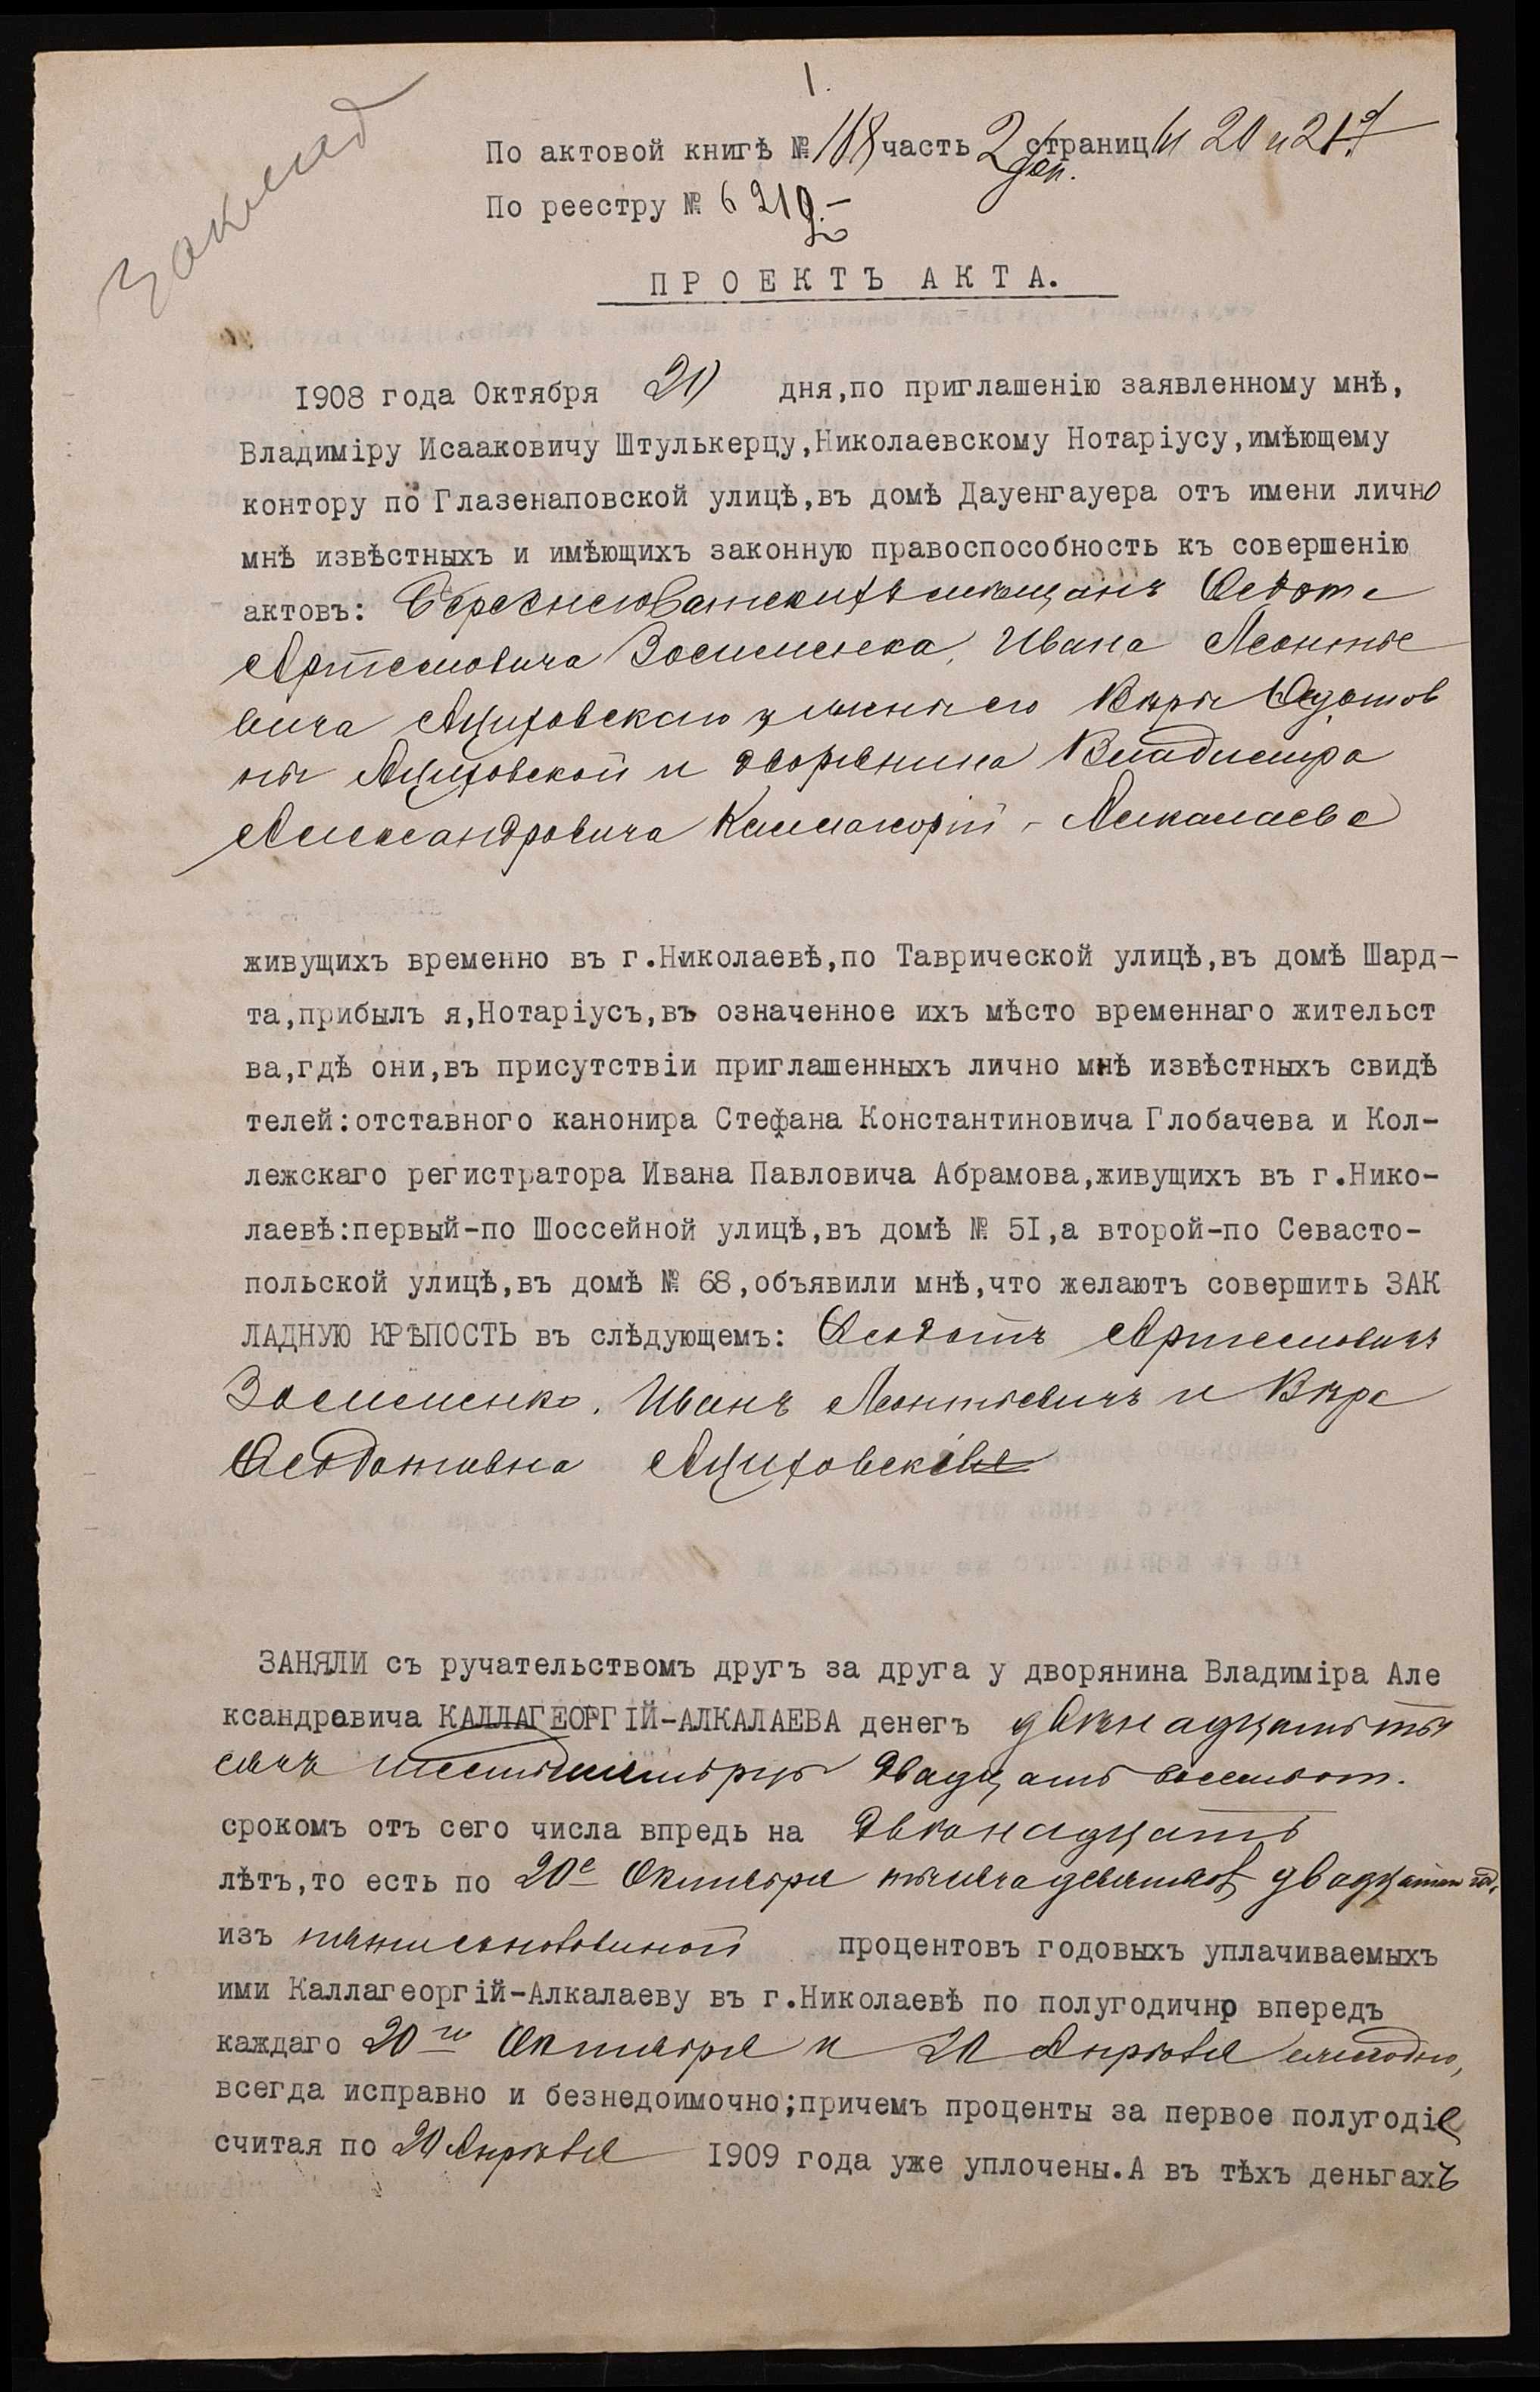 1.
Заклад
По актовой книгѣ № 108 часть 2 доп. страницы 20 и 21
По реестру № 6219.-
ПРОЕКТЪ АКТА.
1908 года Октября 20 дня,по приглашенію заявленному мнѣ,
Владиміру Исааковичу Штулькерцу,Николаевскому Нотаріусу,имѣющему
контору по Глазенаповской улицѣ,въ домѣ Дауенгауера отъ имени лично
мнѣ извѣстныхъ и имѣющихъ законную правоспособность къ совершенію
актовъ: мѣщанъ Ѳедота
Артемовича Зосименка, Ивана Леонтье
вича Яцуховскаго жены его Вѣры Ѳедотов
ны Яцуховской и дворянина Владиміра
Александровича Каллагеоргій-Алкалаева
живущихъ временно въ г.Николаевѣ,по Таврической улицѣ,въ домѣ Шард-
та,прибылъ я,Нотаріусъ,въ означенное ихъ мѣсто временнаго жительст
ва,гдѣ они,въ присутствіи приглашенныхъ лично мнѣ извѣстныхъ свидѣ
телей:отставного канонира Стефана Константиновича Глобачева и Кол-
лежскаго регистратора Ивана Павловича Абрамова,живущихъ въ г.Нико-
лаевѣ:первый-по Шоссейной улицѣ,въ домѣ № 51,а второй-по Севасто-
польской улицѣ,въ домѣ № 68,объявили мнѣ,что желаютъ совершить ЗАК
ЛАДНУЮ КРѢПОСТЬ въ слѣдующемъ: Ѳедотъ Артемовичъ
Зосименко, Иванъ Леонтьевичъ и Вѣра
Ѳедотовна Яцуховскіе
ЗАНЯЛИ съ ручательствомъ другъ за друга у дворянина Владиміра Але
ксандровича КАЛЛАГЕОРГІЙ-АЛКАЛАЕВА денегъ двѣнадцать ты
сячъ шестьсотъ руб двадцать восемь
срокомъ отъ сего числа впредь на двѣнадцать
лѣтъ,то есть по 20е Октября тысяча девятьсотъ двадцатаго год.
изъ пяти съ половиной процентовъ годовыхъ уплачиваемыхъ
ими Каллагеоргій-Алкалаеву въ г.Николаевѣ по полугодично впередъ
каждаго 20го Октября и 20 Апрѣля ежегодно,
всегда исправно и безнедоимочно;причемъ проценты за первое полугодіе
считая по 20 Апрѣля 1909 года уже уплочены.А въ тѣхъ деньгахъ